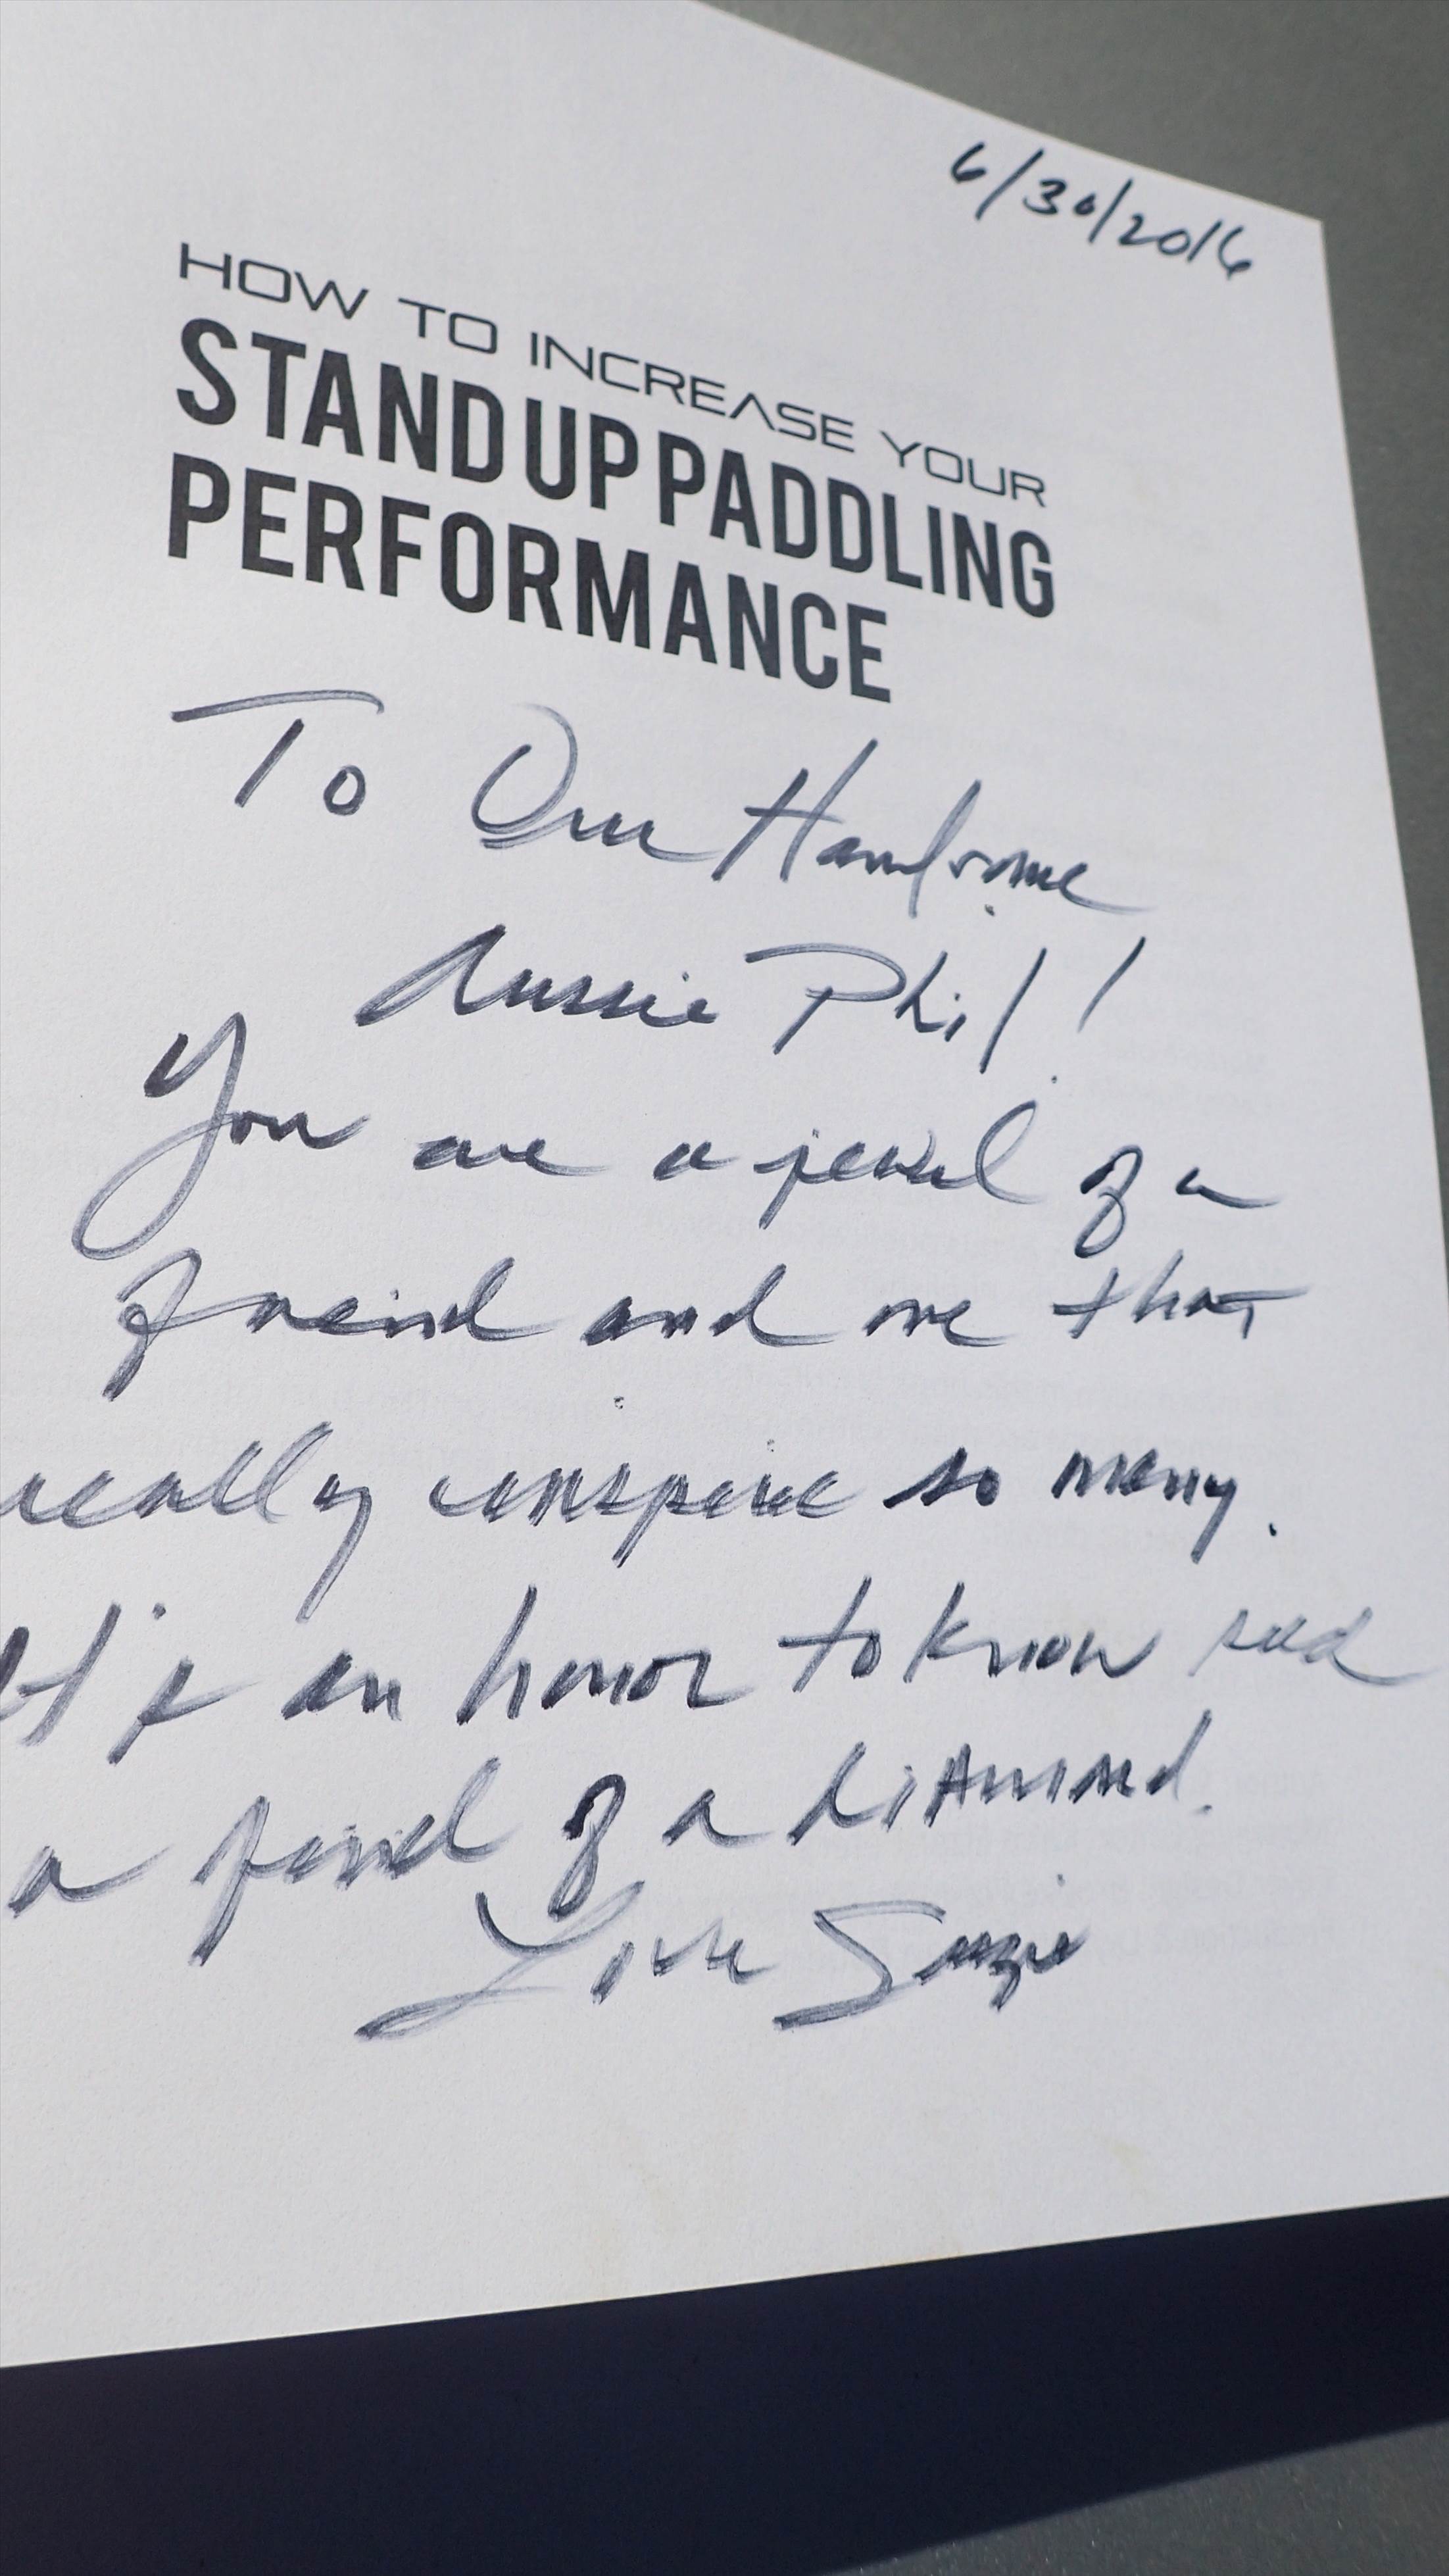 6/30/2016
HOW TO INCREASE YOUR
STAND UP PADDLING
PERFORMANCE
To Our Handsome
Aussie Phil!
You are a jewel of a
freind and one that
really inspire so many.
It is an honor to know
a of a diamond.
Love Suzie